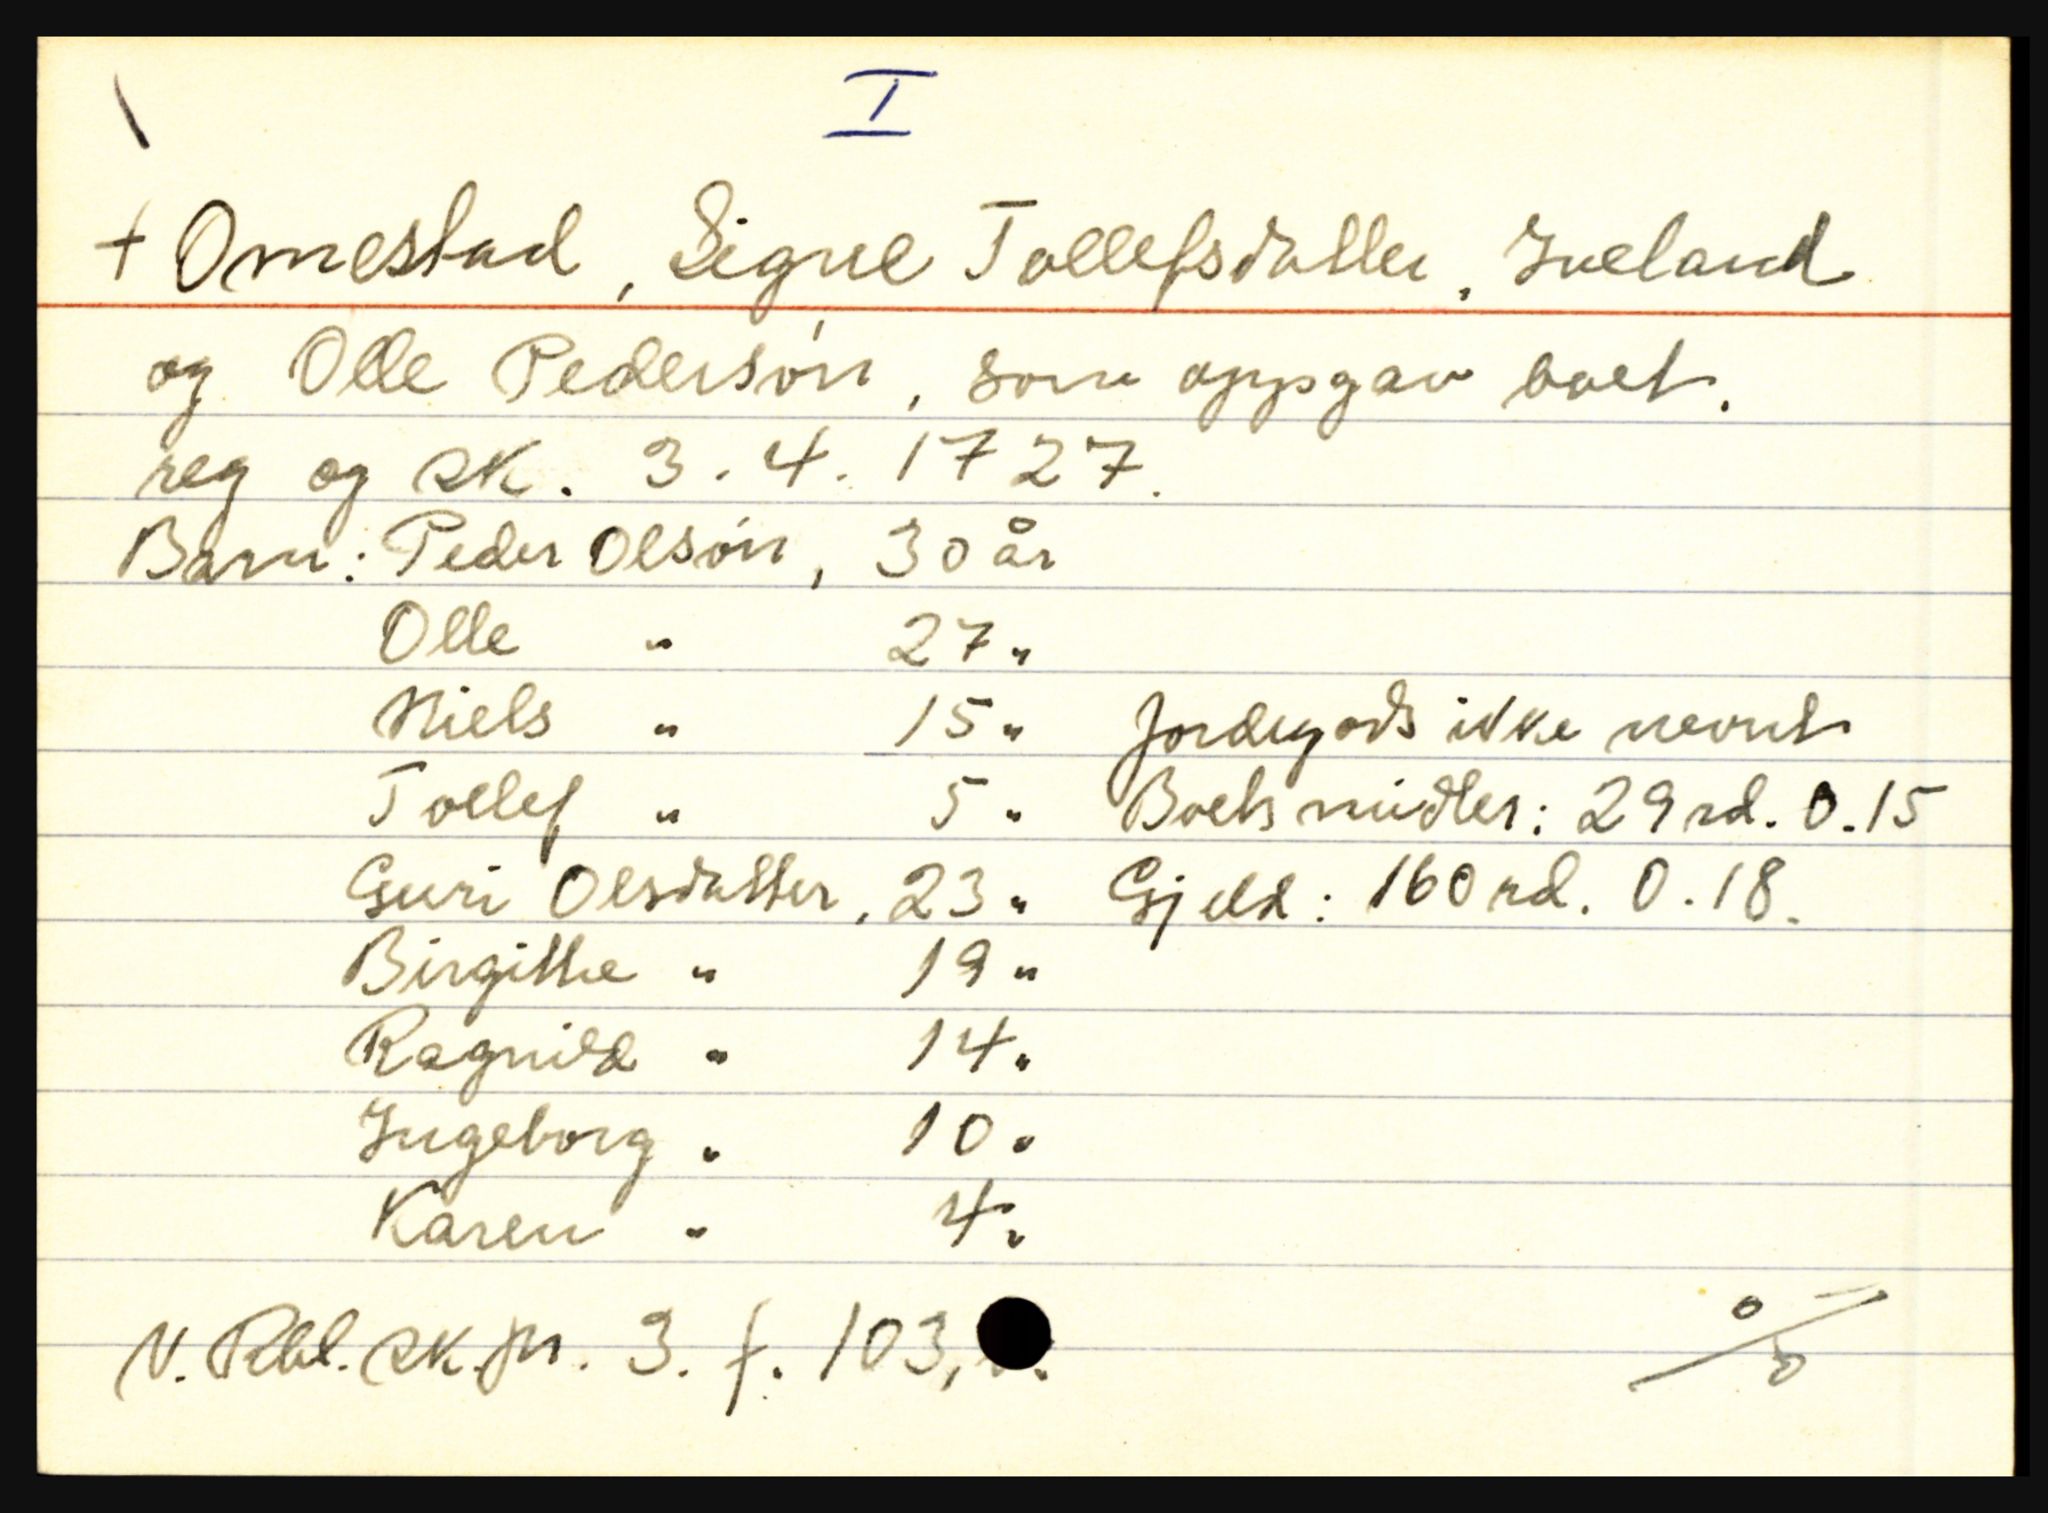 I
+ Omestad, Signe Tollefsdatter, Iveland
og Olle Pedersøn, som oppgav boet.
reg og sk. 3.4.1727.
Barn: Peder Olsøn, 30 år
Olle " 27 "
Niels " 15 " Jordegods ikke nevnt
Tollef " 5 " Boets midler: 29 rd. 0.15
Guri Olsdatter, 23 " Gjeld: 160 rd. 0.18.
Birgithe " 19 "
Ragnild " 14 "
Ingeborg " 10 "
Karen " 4 "
N. Rbl. sk.pr. 3. f. 103,